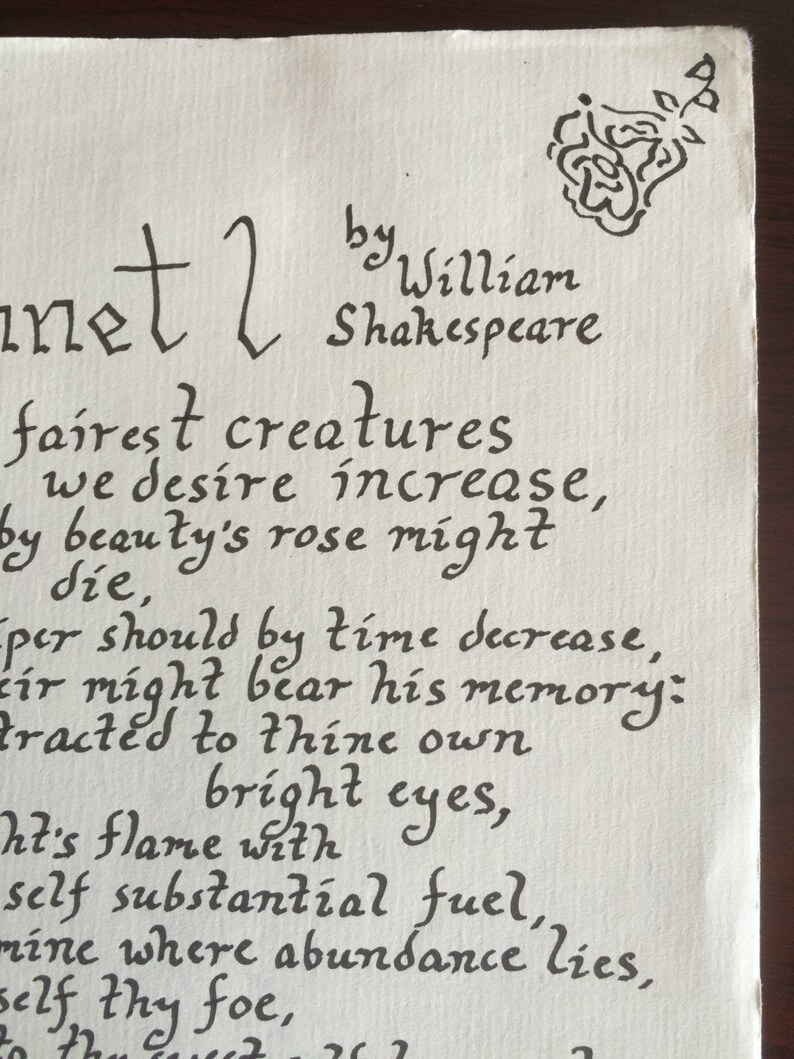 nnet 1
by
William
Shakespeare
fairest creatures
we desire increase,
by beauty's rose might
die,
iper should by time decrease,
eir might bear his memory:
tracted to thine own
bright eyes,
ht's flame with
self substantial fuel,
mine where abundance lies,
self thy foe,
to thy sweet self